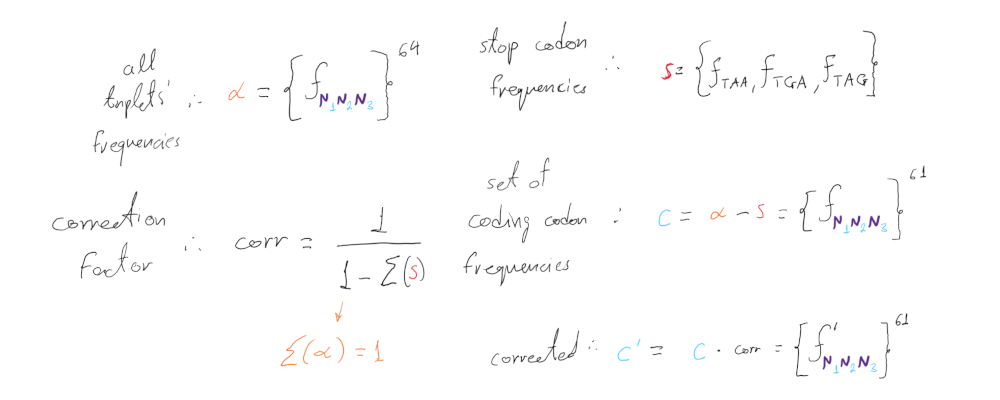 all triplets' frequencies ∴ α = {f_N₁N₂N₃}^64
stop codon frequencies ∴ S = {f_TAA, f_TGA, f_TAG}
correction factor ∴ corr = 1 / (1 - Σ(S))
Σ(α) = 1
set of coding codon frequencies ∴ C = α - S = {f_N₁N₂N₃}^61
corrected ∴ C' = C · corr = {f'_N₁N₂N₃}^61